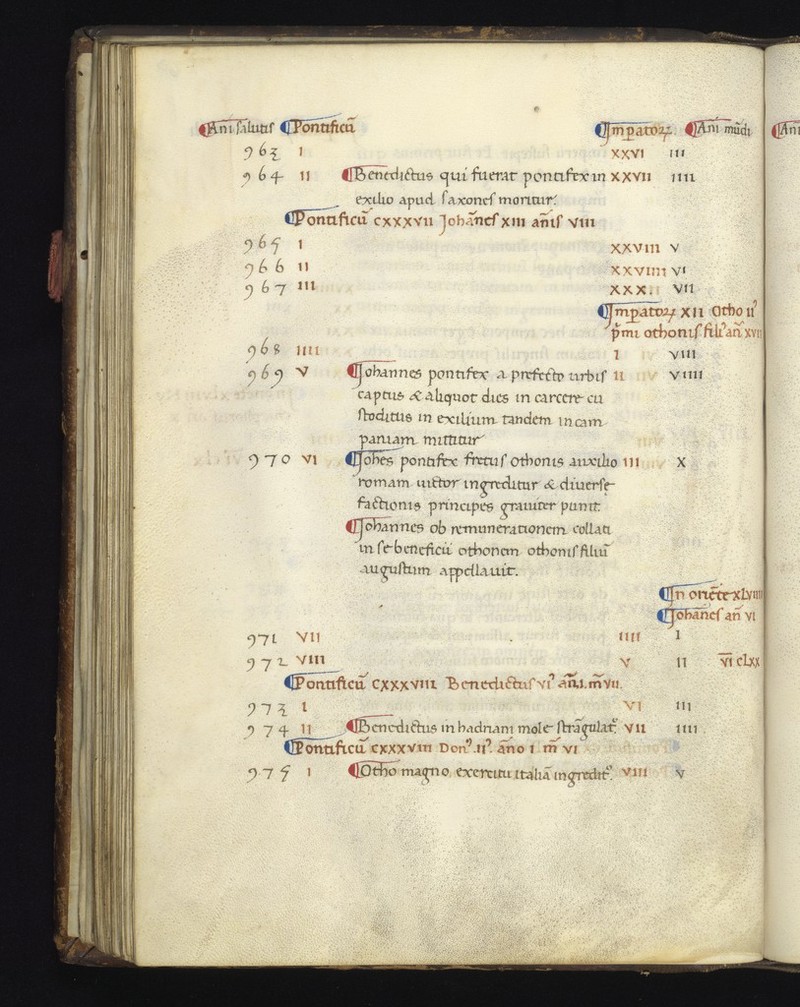 Ani salutis Pontificū Impatoꝝ Ani mūdi
963 I XXVI III
964 II Benedictus qui fuerat pontifex in XXVII IIII
exilio apud saxones moritur.
Pontificū CXXXVII Johānes XIII anīs VIII
965 I XXVIII V
966 II XXVIIII VI
967 III XXX. VII
Impatoꝝ XII Otho IIꝰ
pͥmi othonis filiꝰ añ XVII
968 IIII I VIII
969 V Johannes pontifex a prefecto urbis II VIIII
captus & aliquot dies in carcere cu
stoditus in exilium tandem in cam
paniam mittitur
970 VI Johēs pontifex fretus Othonis auxilio III X
romam uictor ingreditur & diuerse
factionis principes grauiter punit.
Johannes ob remunerationem collati
in se beneficii othonem othonis filiū
augustum appellauit.
In oriēte XLVIIII
Johānes an̄ VI
971 VII IIII I
972 VIII V II VI CLXX
Pontificū CXXXVIII Benedictus VIꝰ añ.I.m̄ VII.
973 I VI III
974 II Benedictus in hadriani mole strāgulat᷒ VII IIII
Pontificū CXXXVIIII Donꝰ.IIꝰ. āno I m̄ VI
975 I Otho magno exercitu italiā ingredit᷒. VIII V